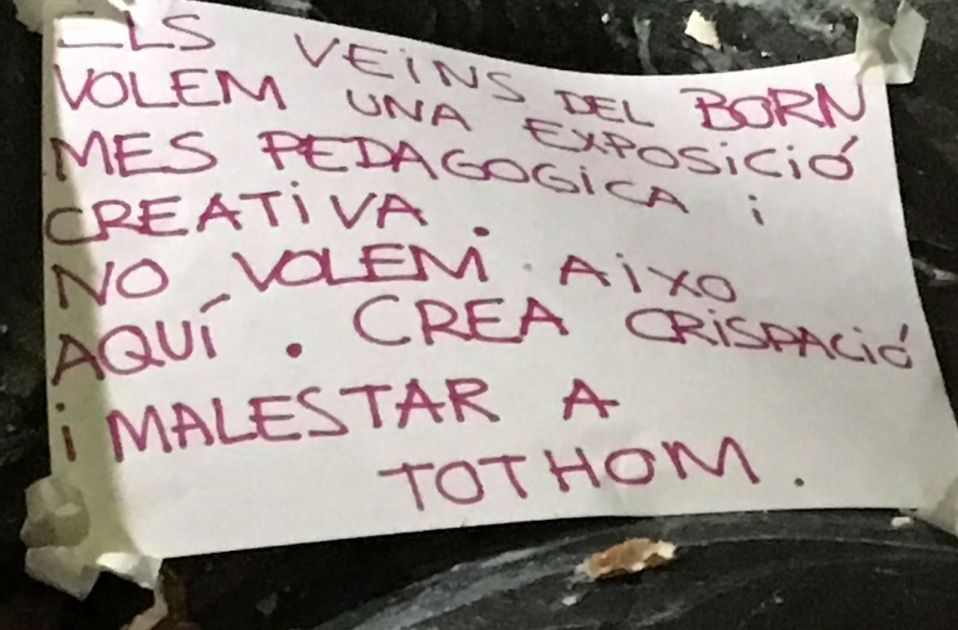 ELS VEiNS DEL BORN
VOLEM UNA EXPOSiCiÓ
MES PEDAGOGiCA i
CREATiVA.
NO VOLEM AiXO
AQUÍ. CREA CRiSPACiÓ
i MALESTAR A
TOTHOM.